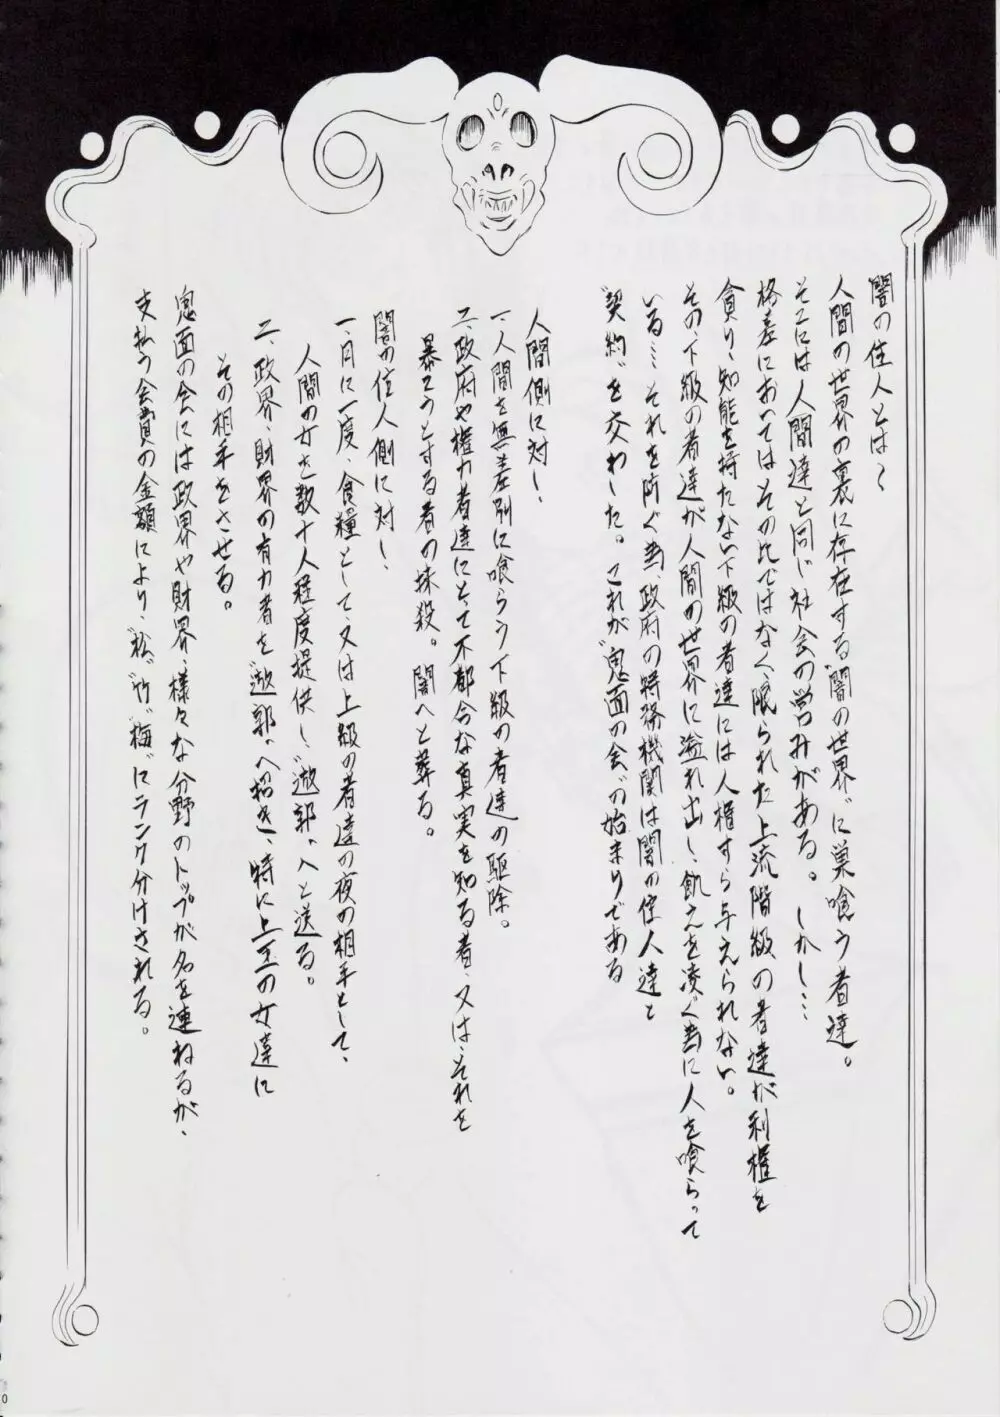 闇の住人とは〜
人間の世界の裏に存在する"闇の世界"に巣喰う者達。
そこには人間達と同じ社会の営みがある。しかし…
格差においてはその比ではなく、限られた上流階級の者達が利権を
貪り、知能を持たない下級の者達には人権すら与えられない。
その、下級の者達が人間の世界に溢れ出し、飢えを凌ぐ為に人を喰らって
いる…それを防ぐ為、政府の特務機関は闇の住人達と
"契約"を交わした。これが"鬼面の会"の始まりである
人間側に対し、
一、人間を無差別に喰らう下級の者達の駆除。
二、政府や権力者達にとって不都合な真実を知る者、又は、それを
暴こうとする者の抹殺。闇へと葬る。
闇の住人側に対し、
一、月に一度、食糧として、又は上級の者達の夜の相手として、
人間の女を数十人程度提供し、"遊郭"へと送る。
二、政界、財界の有力者を"遊郭"へ招き、特に上玉の女達に
その相手をさせる。
鬼面の会には政界や財界、様々な分野のトップが名を連ねるが、
支払う会費の金額により、"松""竹""梅"にランク分けされる。